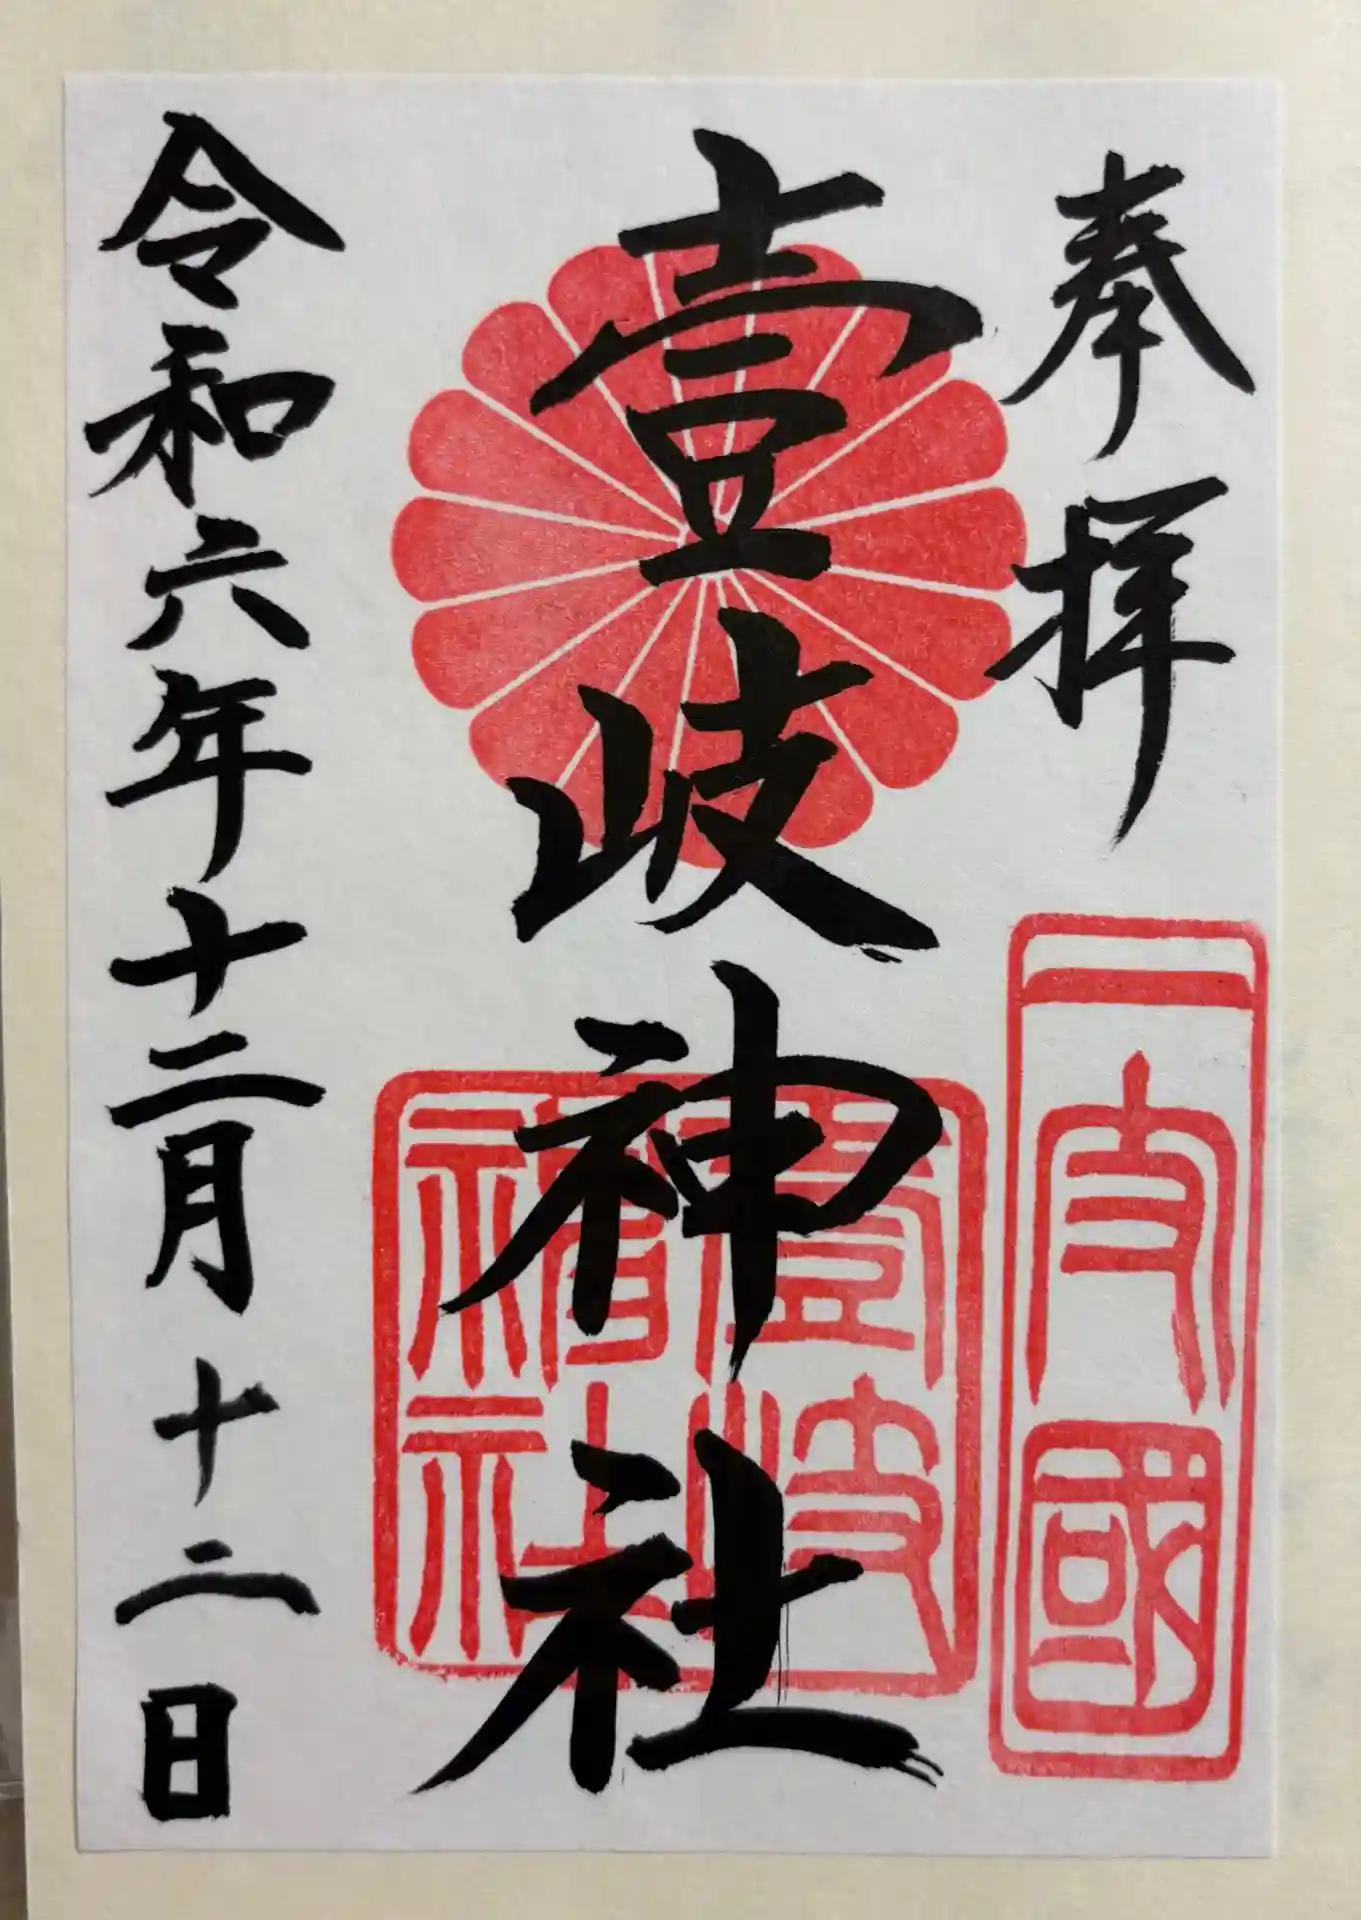 奉拝
一支國
壹岐神社
壹岐
神社
令和六年十二月十二日